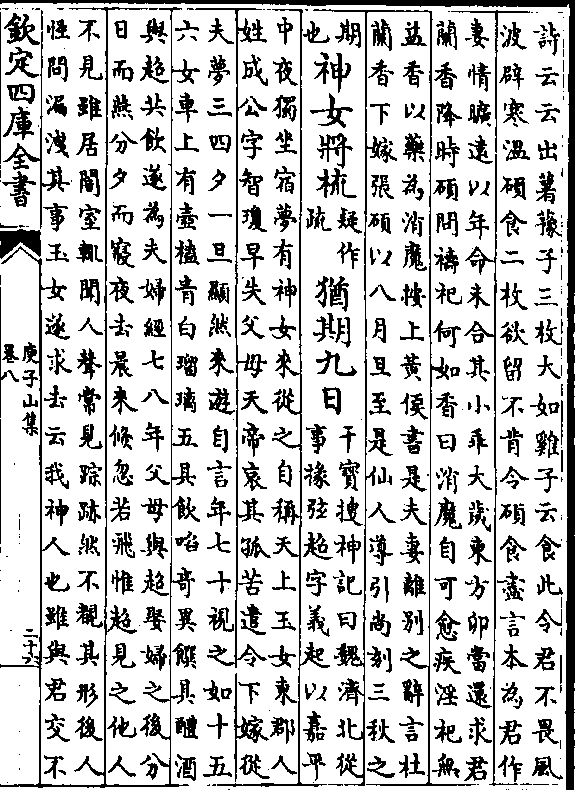 詩云云出薯蕷子三枚大如雞子云食此令君不畏風
波辟寒溫碩食二枚欲留不肯令碩食盡言本為君作
妻情曠遠以年命未合其小乖大歲東方卯當還求君
蘭香降時碩問禱祀何如香曰消魔自可愈疾淫祀無
益香以藥為消魔按上黃便書是夫妻離別之辭言杜
蘭香下嫁張碩以八月旦至是仙人導引尚刻三秋之
期
也
神女將梳
疑作
疏
猶期九日
干寶搜神記曰魏濟北從
事掾弦超字義起以嘉平
中夜獨坐宿夢有神女來從之自稱天上玉女東郡人
姓成公字智瓊早失父母天帝哀其孤苦遣令下嫁從
夫夢三四夕一旦顯然來遊自言年七十視之如十五
六女車上有壺榼青白瑠璃五具飲啗奇異饌具醴酒
與超共飲遂為夫婦經七八年父母與超娶婦之後分
日而燕分夕而寢夜去晨來倐忽若飛惟超見之他人
不見雖居闇室輒聞人聲常見踪跡然不覩其形後人
怪問漏洩其事玉女遂求去云我神人也雖與君交不
欽定四庫全書
庾子山集
卷八
二十六